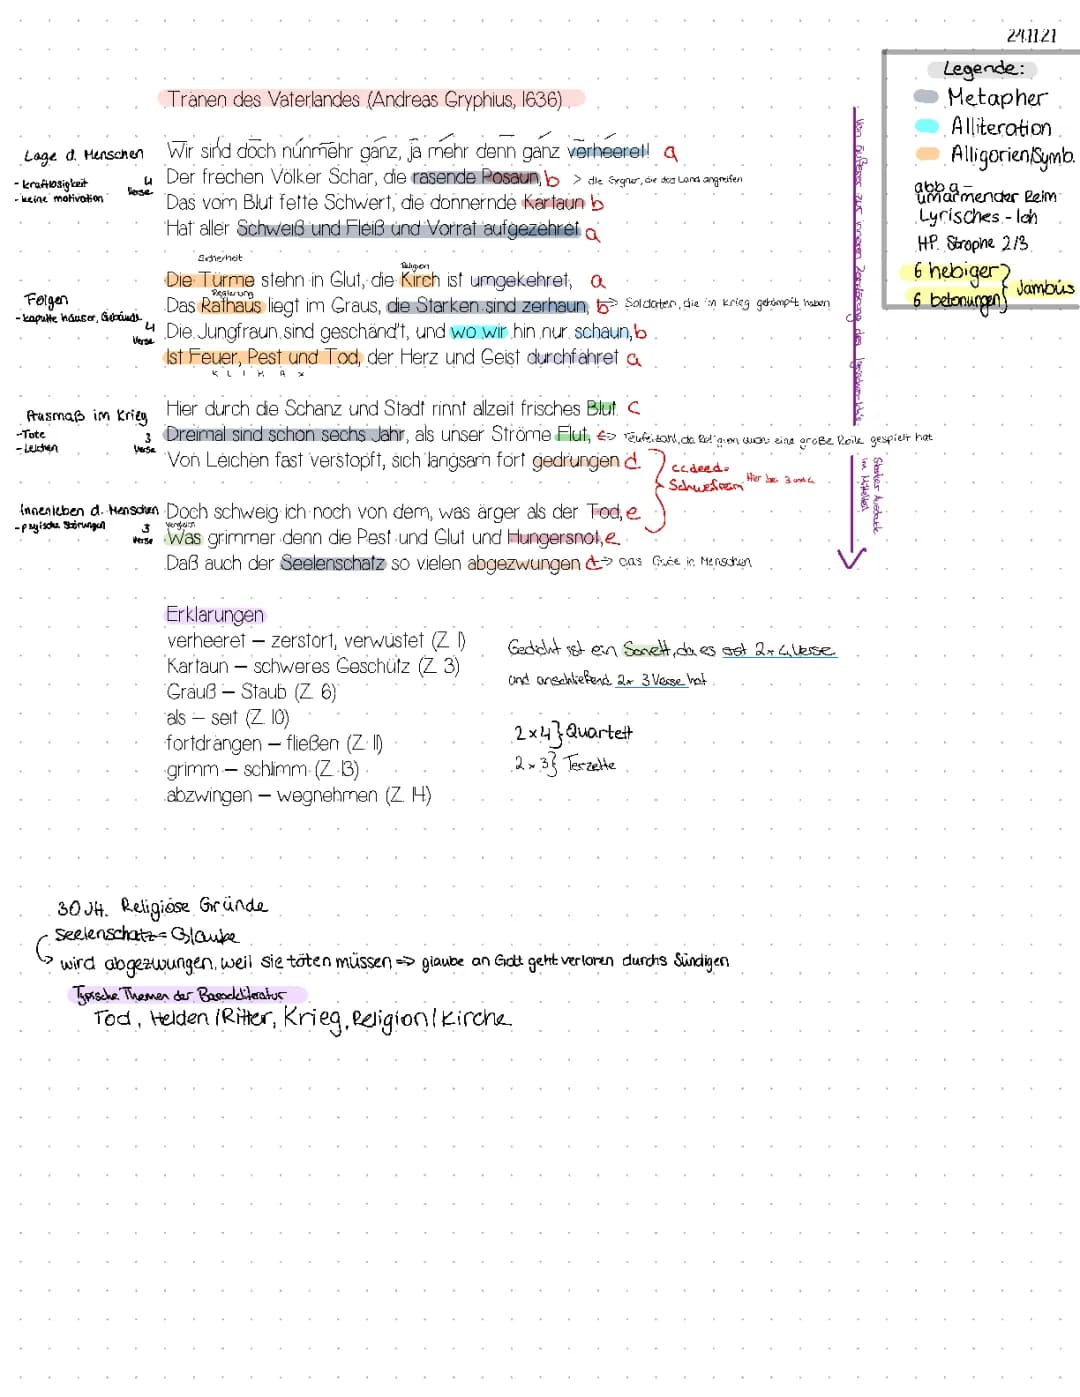 24.11.21
Legende:
Metapher
Alliteration
Alligorien/Symb.
abba -
umarmender Reim
Lyrisches - Ich
HP. Strophe 2/3
6 hebiger
6 betonungen } Jambus
Tränen des Vaterlandes (Andreas Gryphius, 1636)
Lage d. Menschen
- kraftlosigkeit
- keine motivation
4 Verse
Wir sind doch nunmehr ganz, ja mehr denn ganz verheeret! a
Der frechen Völker Schar, die rasende Posaun, b > die Gegner, die das Land angreifen
Das vom Blut fette Schwert, die donnernde Kartaun b
Hat aller Schweiß und Fleiß und Vorrat aufgezehret a
Sicherheit
Religion
Die Türme stehn in Glut, die Kirch ist umgekehret, a
Regierung
Folgen
- kaputte häuser, Gebäude
4 Verse
Das Rathaus liegt im Graus, die Starken sind zerhaun, b => Soldaten, die in Krieg gekämpft haben
Die Jungfraun sind geschänd't, und wo wir hin nur schaun, b
Ist Feuer, Pest und Tod, der Herz und Geist durchfähret a
KLIMAX
Ausmaß im Krieg
- Tote
- Leichen
3 Verse
Hier durch die Schanz und Stadt rinnt allzeit frisches Blut. c
Dreimal sind schon sechs Jahr, als unser Ströme Flut, c => Teufelszahl, da Religion auch eine große Rolle gespielt hat
Von Leichen fast verstopft, sich langsam fort gedrungen d
ccdeed =
Schweifreim Hier bei 3 und 4
Innenleben d. Menschen
- psyische Störungen
3 Verse
Doch schweig ich noch von dem, was ärger als der Tod, e
Vergleich
Was grimmer denn die Pest und Glut und Hungersnot, e
Daß auch der Seelenschatz so vielen abgezwungen d => das Gute in Menschen
Von äußerer zur inneren Zerstörung des
Starker Ausdruck
im Mittelteil
Erklärungen
verheeret – zerstört, verwüstet (Z. 1)
Kartaun – schweres Geschütz (Z. 3)
Grauß – Staub (Z. 6)
als – seit (Z. 10)
fortdrängen – fließen (Z. 11)
grimm – schlimm (Z. 13)
abzwingen – wegnehmen (Z. 14)
Gedicht ist ein Sonett, da es erst 2x 4 Verse
und anschließend 2x 3 Verse hat
2x4} Quartett
2x3} Terzette
30 JH. Religiöse Gründe
Seelenschatz = Glaube
wird abgezwungen, weil sie töten müssen => glaube an Gott geht verloren durchs Sündigen
Typische Themen der Barockliteratur
Tod, Helden/Ritter, Krieg, Religion/Kirche